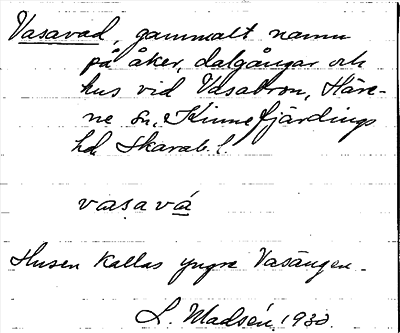 Vasavad, gammalt namn
på åker, dalgångar och
hus vid Vasabron, Häre-
ne sn, Kinnefjärdings
hd Skarab. l.
vasavá
Husen kallas yngre Vasängen.
L. Madsén, 1930.